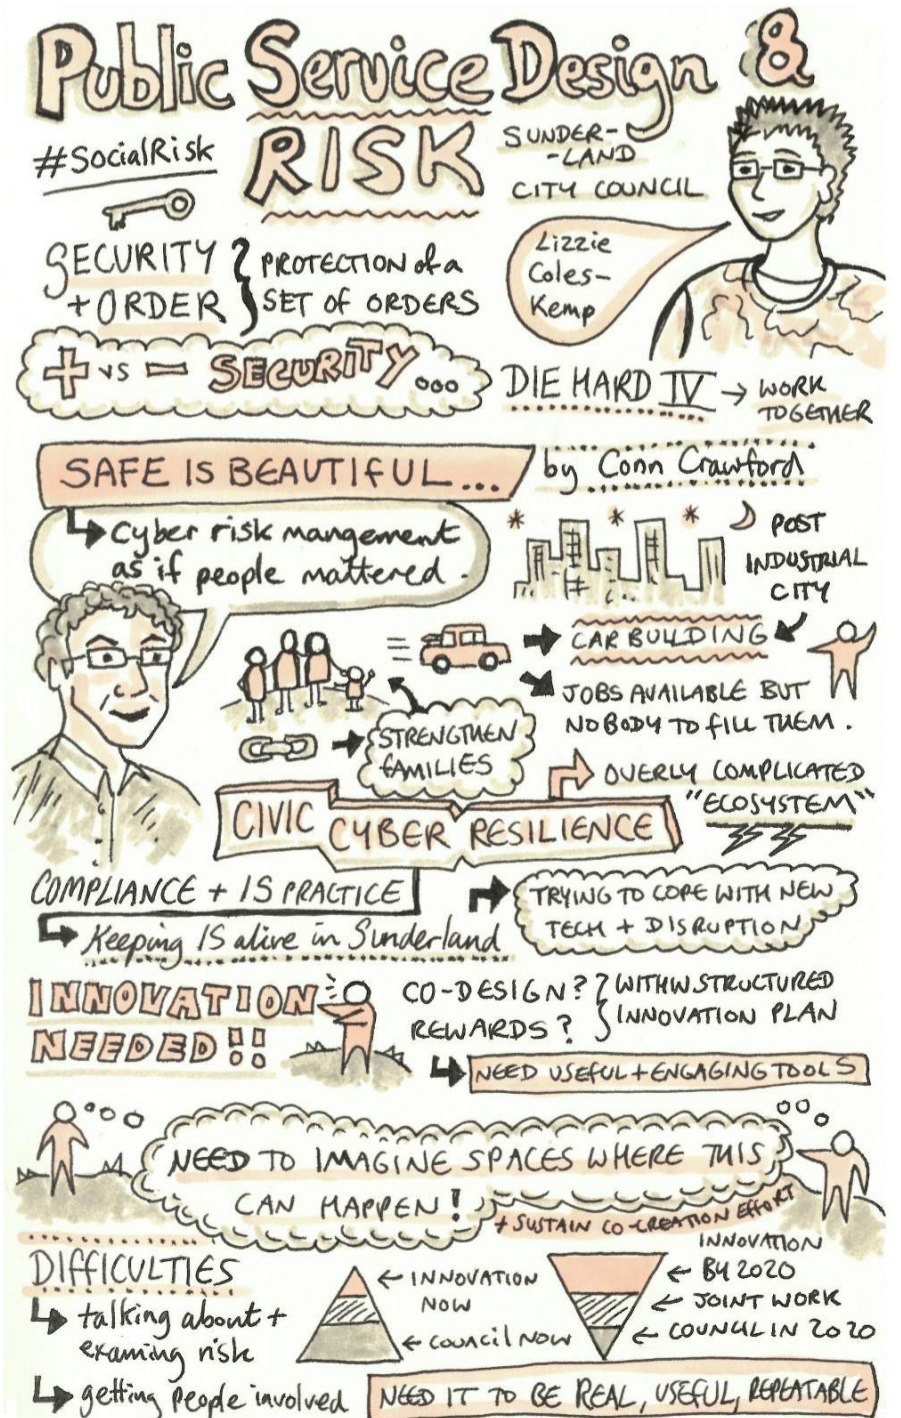 Public Service Design &
RISK
#SocialRisk
SUNDER-
-LAND
CITY COUNCIL
SECURITY
+ ORDER
PROTECTION of a
SET OF ORDERS
Lizzie
Coles-
Kemp
+ vs - SECURITY...
DIE HARD IV → WORK
TOGETHER
SAFE IS BEAUTIFUL...
by Conn Crawford
Cyber risk mangement
as if people mattered.
POST
INDUSTRIAL
CITY
CAR BUILDING
JOBS AVAILABLE BUT
NOBODY TO FILL THEM.
STRENGTHEN
FAMILIES
OVERLY COMPLICATED
"ECOSYSTEM"
CIVIC CYBER RESILIENCE
COMPLIANCE + IS PRACTICE
Keeping IS alive in Sunderland
TRYING TO COPE WITH NEW
TECH + DISRUPTION
INNOVATION
NEEDED!!
CO-DESIGN?
REWARDS?
WITHIN STRUCTURED
INNOVATION PLAN
NEED USEFUL + ENGAGING TOOLS
NEED TO IMAGINE SPACES WHERE THIS
CAN HAPPEN!
+ SUSTAIN CO-CREATION EFFORT
DIFFICULTIES
talking about +
examing risk
getting people involved
← INNOVATION
NOW
← COUNCIL NOW
INNOVATION
← BY 2020
← JOINT WORK
← COUNCIL IN 2020
NEED IT TO BE REAL, USEFUL, REPEATABLE